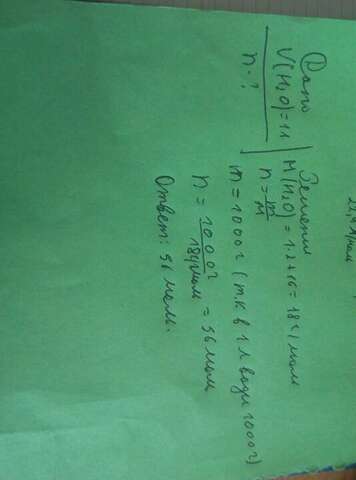 Дано
V(H2O)=1л
n-?
Решение
M(H2O)=1·2+16=18г/моль
n=m/M
m=1000г (т.к в 1л воды 1000г)
n=1000г/18г/моль=56моль
Ответ: 56 моль.